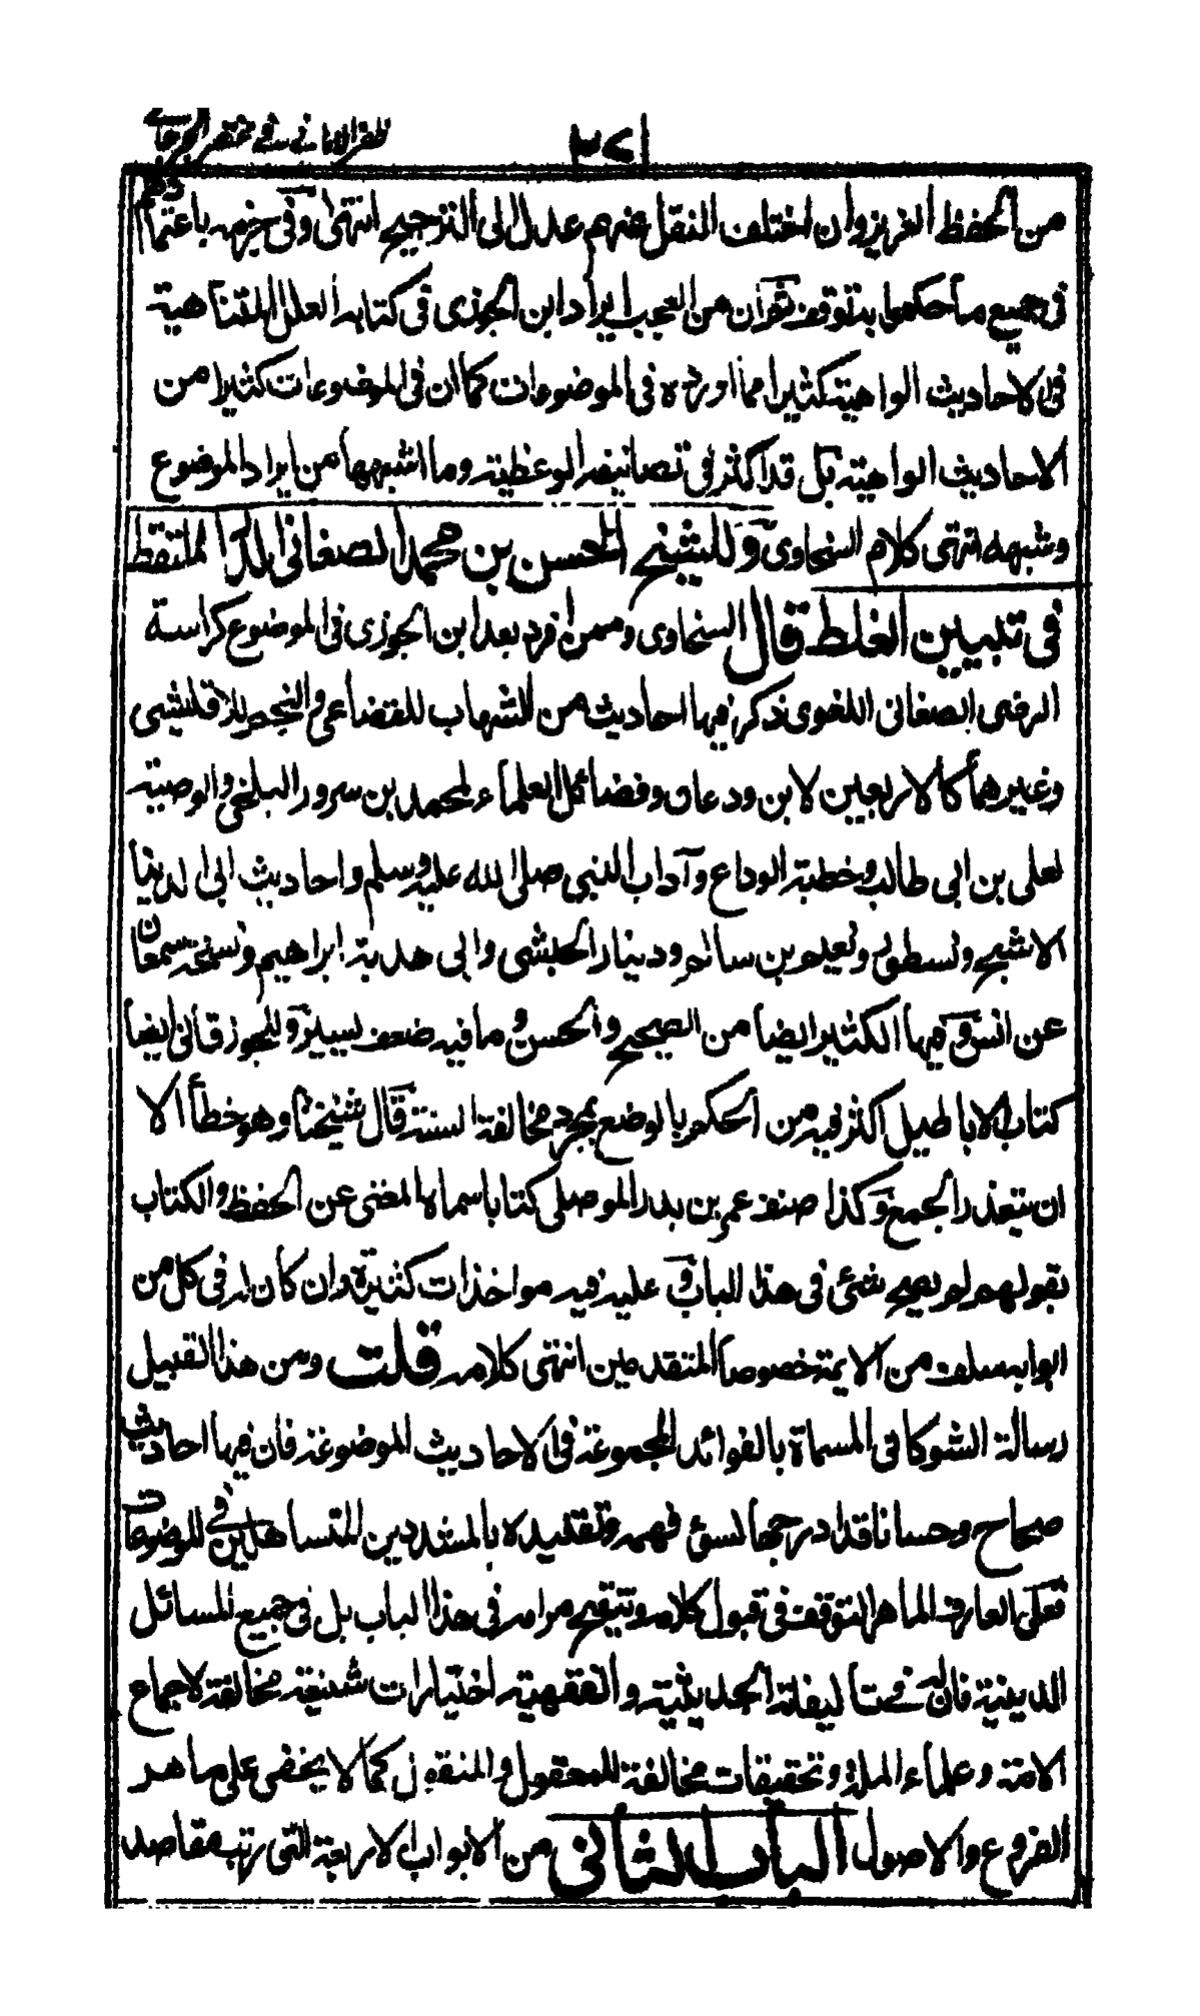 ٢٧١ ظفر الاماني في مختصر الجرجاني
من الحفظ الغزير وان اختلف النقل عنهم عدل الى الترجيح انتهى وفي جزمه باعتماد
في جميع ما حكموا به توقف ثم ان من العجب ايراد ابن الجوزى في كتابه العلل المتناهية
في الاحاديث الواهية كثيرا مما اورده في الموضوعات كما ان في الموضوعات كثيرا من
الاحاديث الواهية بل قد اكثر في تصانيفه الوعظية وما اشبهها من ايراد الموضوع
وشبهه انتهى كلام السخاوى وللشيخ الحسن بن محمد الصغاني الدر الملتقط
في تبيين الغلط قال السخاوى وممن افرد بعد ابن الجوزى في الموضوع كراسة
الرضى الصغانى اللغوى ذكر فيها احاديث من الشهاب للقضاعى والنجم للاقليشى
وغيرهما كالاربعين لابن ودعان وفضائل العلماء لمحمد بن سرور البلخى والوصية
لعلى بن ابى طالب وخطبة الوداع وآداب النبى صلى الله عليه وسلم واحاديث ابى الدنيا
الاشج ونسطور ونعيم بن سالم ودينار الحبشى وابى هدبة ابراهيم ونسخة سمعان
عن انس وفيها الكثير ايضا من الصحيح والحسن وما فيه ضعف يسير وللجوزقانى ايضا
كتاب الاباطيل اكثر فيه من الحكم بالوضع بمجرد مخالفة السنة قال شيخنا وهو خطأ الا
ان يتعذر الجمع وكذا صنف عمر بن بدر الموصلى كتابا سماه المغنى عن الحفظ والكتاب
بقولهم لم يصح شئى في هذا الباب وعليه فيه مواخذات كثيرة وان كان له في كل من
ابوابه سلف من الايمة خصوصا المتقدمين انتهى كلامه قلت ومن هذا القبيل
رسالة الشوكانى المسماة بالفوائد المجموعة في الاحاديث الموضوعة فان فيها احاديث
صحاح وحسانا قد ادرجها لسوء فهمه وتقليده بالمشددين المتساهلين في الموضوعات
فعلى العارف الماهر التوقف في قبول كلامه وتنقيح مرامه في هذا الباب بل في جميع المسائل
الدينية فان له في تاليفاته الحديثية والفقهية اختيارات شنيعة مخالفة لاجماع
الامة وعلماء الملة وتحقيقات مخالفة للمعقول والمنقول كما لا يخفى على ماهر
الفروع والاصول الباب الثانى من الابواب الاربعة التى رتب مقاصد